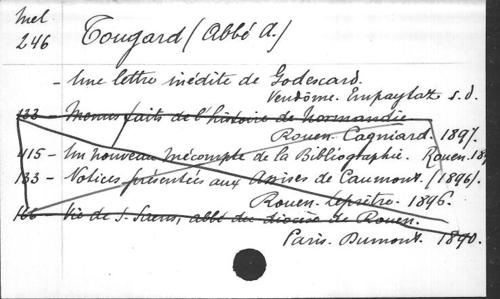 Mel
246
Tougard (Abbé A.)
- Une lettre inédite de Godescard.
Vendôme. Empaytaz s.d.
133 - Menus faits de l'histoire de Normandie
Rouen. Cagniard. 1897.
415 - Un nouveau mécompte de la Bibliographie. Rouen. 18
133 - Notices présentées aux Assises de Caumont. (1896).
Rouen. Leprêtre. 1896.
166 - Vie de S. Saens, abbé du diocèse de Rouen.
Paris. Dumont. 1890.